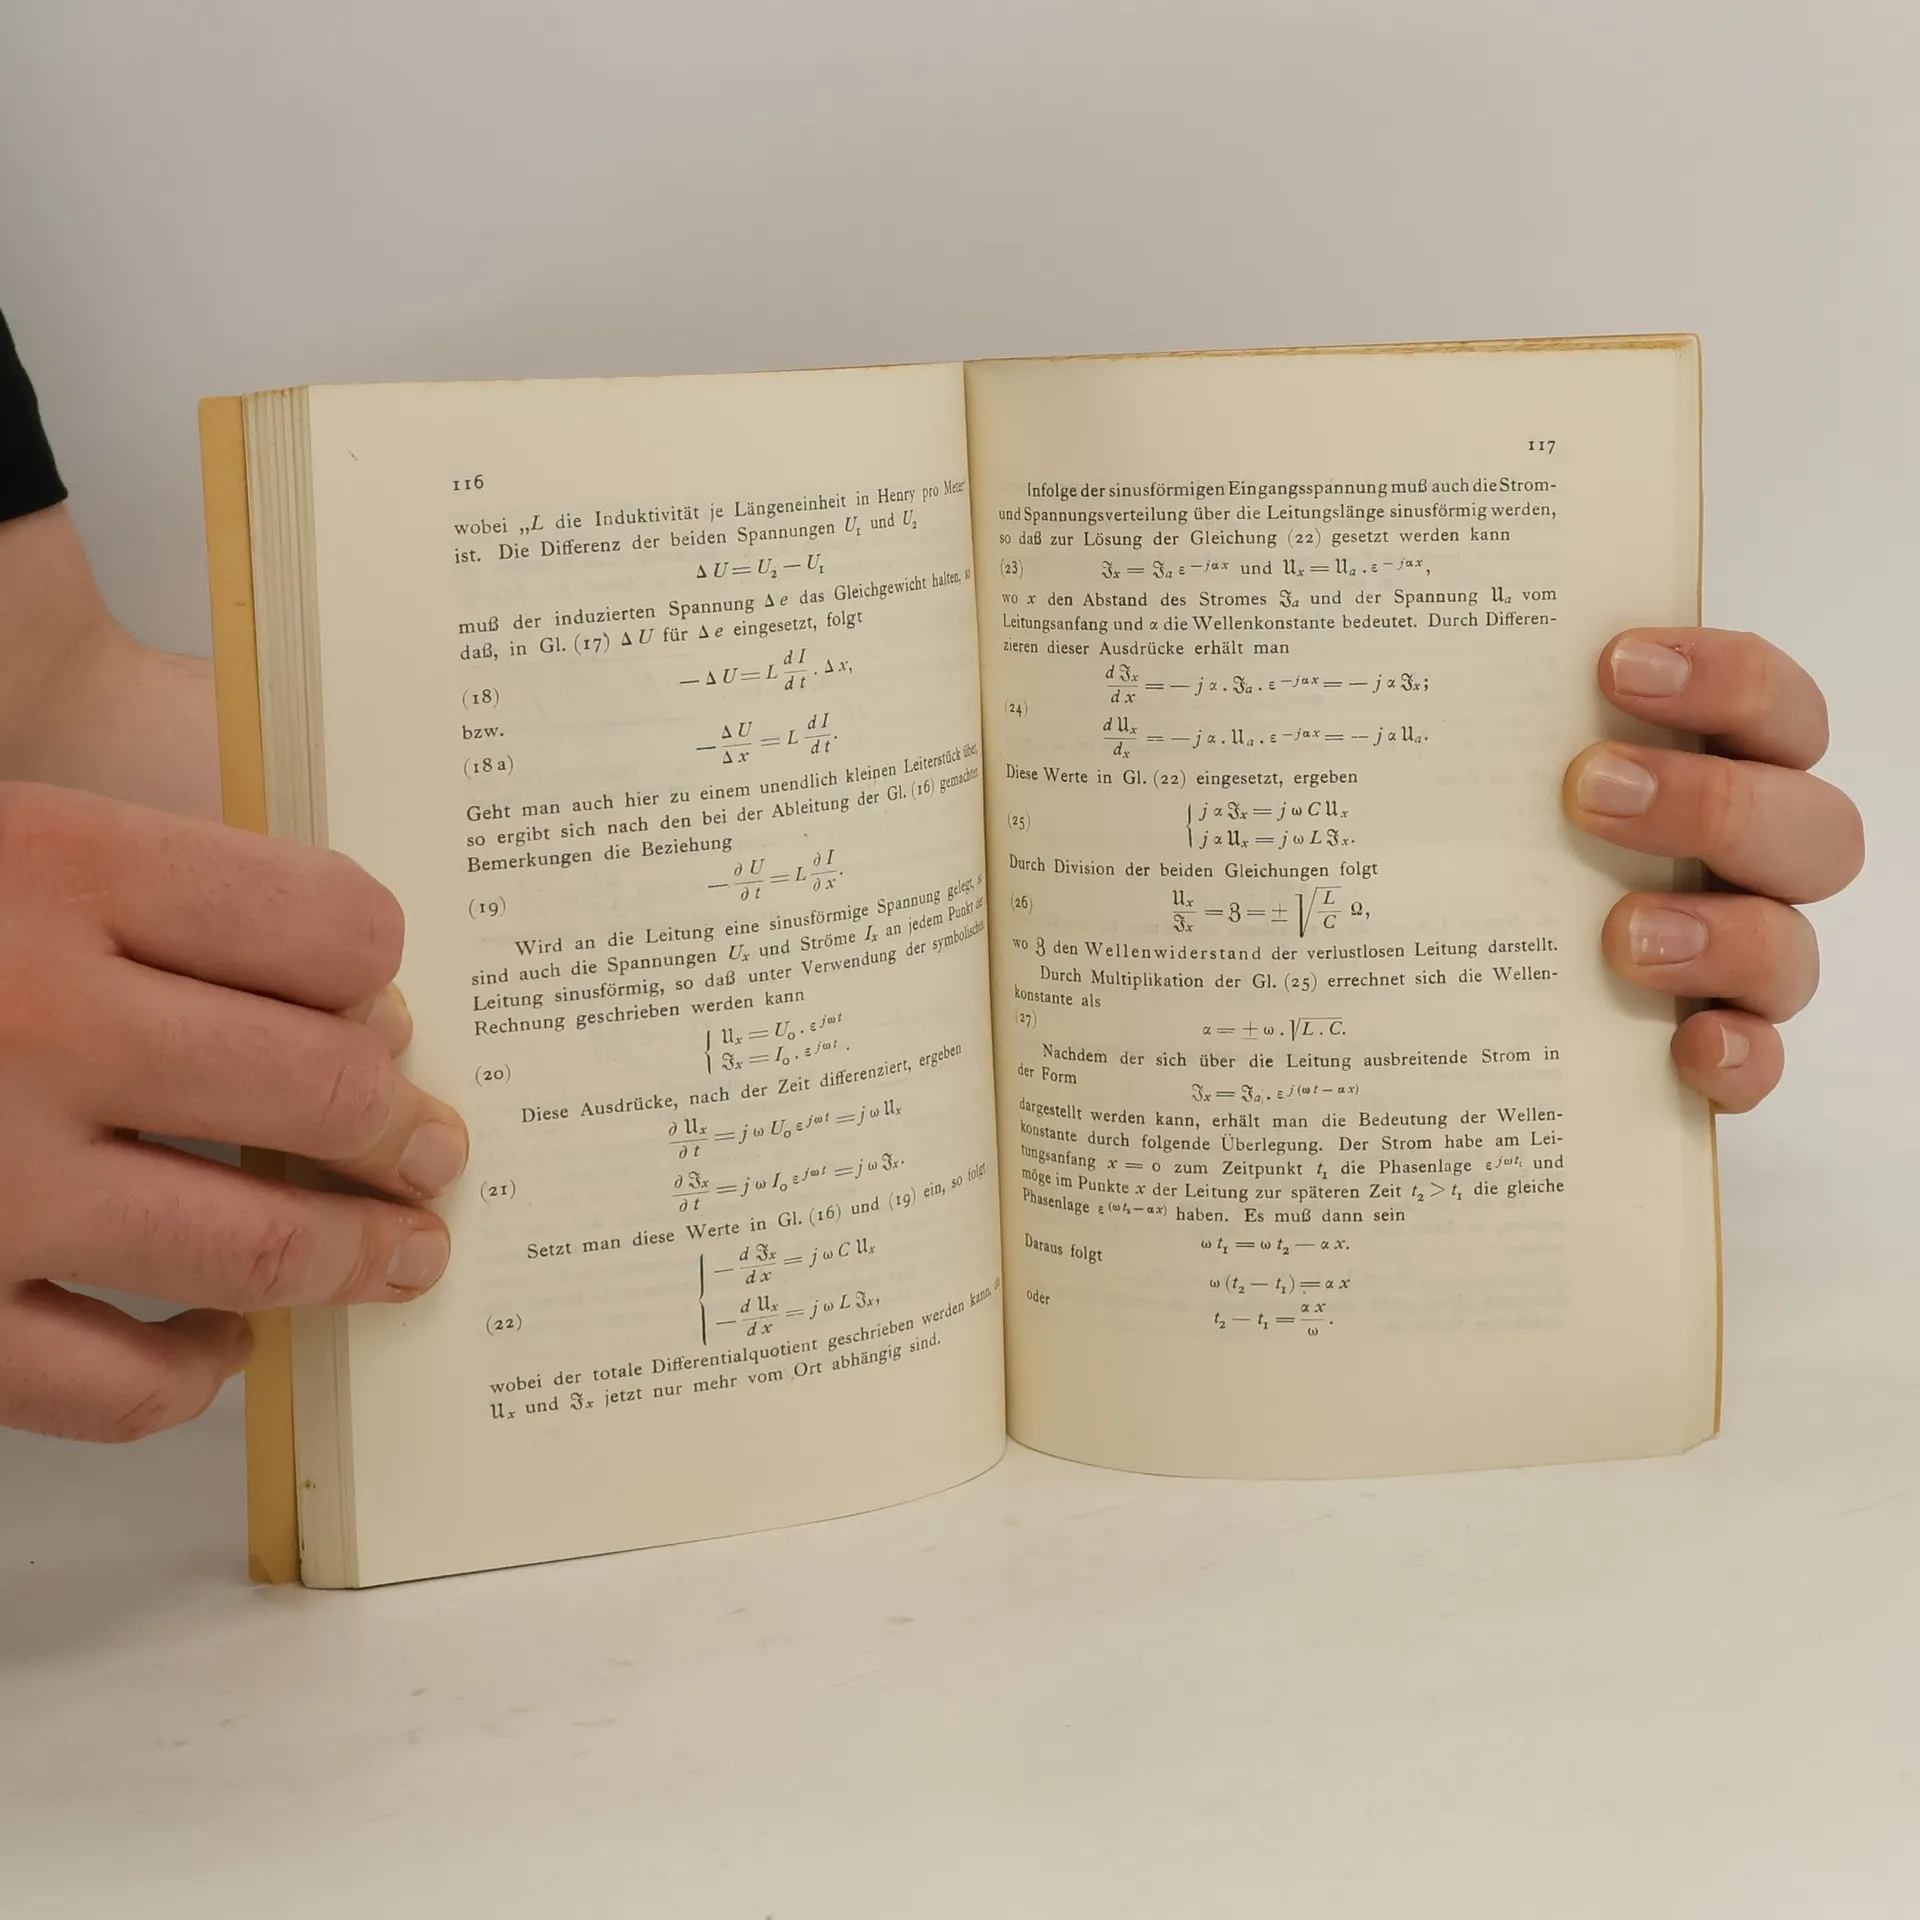 116
wobei „L die Induktivität je Längeneinheit in Henry pro Meter"
ist. Die Differenz der beiden Spannungen U₁ und U₂
Δ U = U₂ — U₁
muß der induzierten Spannung Δ e das Gleichgewicht halten, so
daß, in Gl. (17) Δ U für Δ e eingesetzt, folgt
(18) — Δ U = L d I / d t . Δ x,
bzw.
(18 a) — Δ U / Δ x = L d I / d t .
Geht man auch hier zu einem unendlich kleinen Leiterstück über,
so ergibt sich nach den bei der Ableitung der Gl. (16) gemachten
Bemerkungen die Beziehung
(19) — ∂ U / ∂ t = L ∂ I / ∂ x .
Wird an die Leitung eine sinusförmige Spannung gelegt, so
sind auch die Spannungen Uₓ und Ströme Iₓ an jedem Punkt der
Leitung sinusförmig, so daß unter Verwendung der symbolischen
Rechnung geschrieben werden kann
𝔘ₓ = U₀ . ε^{jωt}
(20) ℑₓ = I₀ . ε^{jωt} .
Diese Ausdrücke, nach der Zeit differenziert, ergeben
∂ 𝔘ₓ / ∂ t = j ω U₀ ε^{jωt} = j ω 𝔘ₓ
(21) ∂ ℑₓ / ∂ t = j ω I₀ ε^{jωt} = j ω ℑₓ.
Setzt man diese Werte in Gl. (16) und (19) ein, so folgt
— d ℑₓ / d x = j ω C 𝔘ₓ
(22) — d 𝔘ₓ / d x = j ω L ℑₓ,
wobei der totale Differentialquotient geschrieben werden kann, da
𝔘ₓ und ℑₓ jetzt nur mehr vom Ort abhängig sind.
117
Infolge der sinusförmigen Eingangsspannung muß auch die Strom-
und Spannungsverteilung über die Leitungslänge sinusförmig werden,
so daß zur Lösung der Gleichung (22) gesetzt werden kann
(23) ℑₓ = ℑₐ ε^{—jαx} und 𝔘ₓ = 𝔘ₐ . ε^{—jαx},
wo x den Abstand des Stromes ℑₐ und der Spannung 𝔘ₐ vom
Leitungsanfang und α die Wellenkonstante bedeutet. Durch Differen-
zieren dieser Ausdrücke erhält man
d ℑₓ / d x = — j α . ℑₐ . ε^{—jαx} = — j α ℑₓ;
(24)
d 𝔘ₓ / dₓ = — j α . 𝔘ₐ . ε^{—jαx} = — j α 𝔘ₐ.
Diese Werte in Gl. (22) eingesetzt, ergeben
(25) j α ℑₓ = j ω C 𝔘ₓ
j α 𝔘ₓ = j ω L ℑₓ.
Durch Division der beiden Gleichungen folgt
(26) 𝔘ₓ / ℑₓ = ℨ = ± √(L / C) Ω,
wo ℨ den Wellenwiderstand der verlustlosen Leitung darstellt.
Durch Multiplikation der Gl. (25) errechnet sich die Wellen-
konstante als
(27) α = ± ω . √(L . C).
Nachdem der sich über die Leitung ausbreitende Strom in
der Form
ℑₓ = ℑₐ . ε^{j(ωt — αx)}
dargestellt werden kann, erhält man die Bedeutung der Wellen-
konstante durch folgende Überlegung. Der Strom habe am Lei-
tungsanfang x = 0 zum Zeitpunkt t₁ die Phasenlage ε^{jωt₁} und
möge im Punkte x der Leitung zur späteren Zeit t₂ > t₁ die gleiche
Phasenlage ε^{(ωt₂—αx)} haben. Es muß dann sein
ω t₁ = ω t₂ — α x.
Daraus folgt
ω (t₂ — t₁) = α x
oder
t₂ — t₁ = α x / ω .